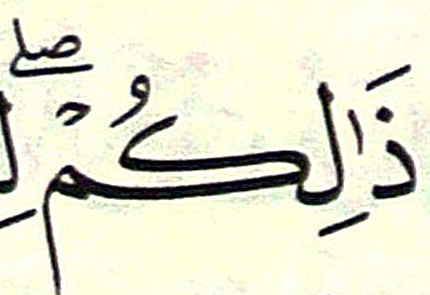 ذَٰلِكُمْ ۖ